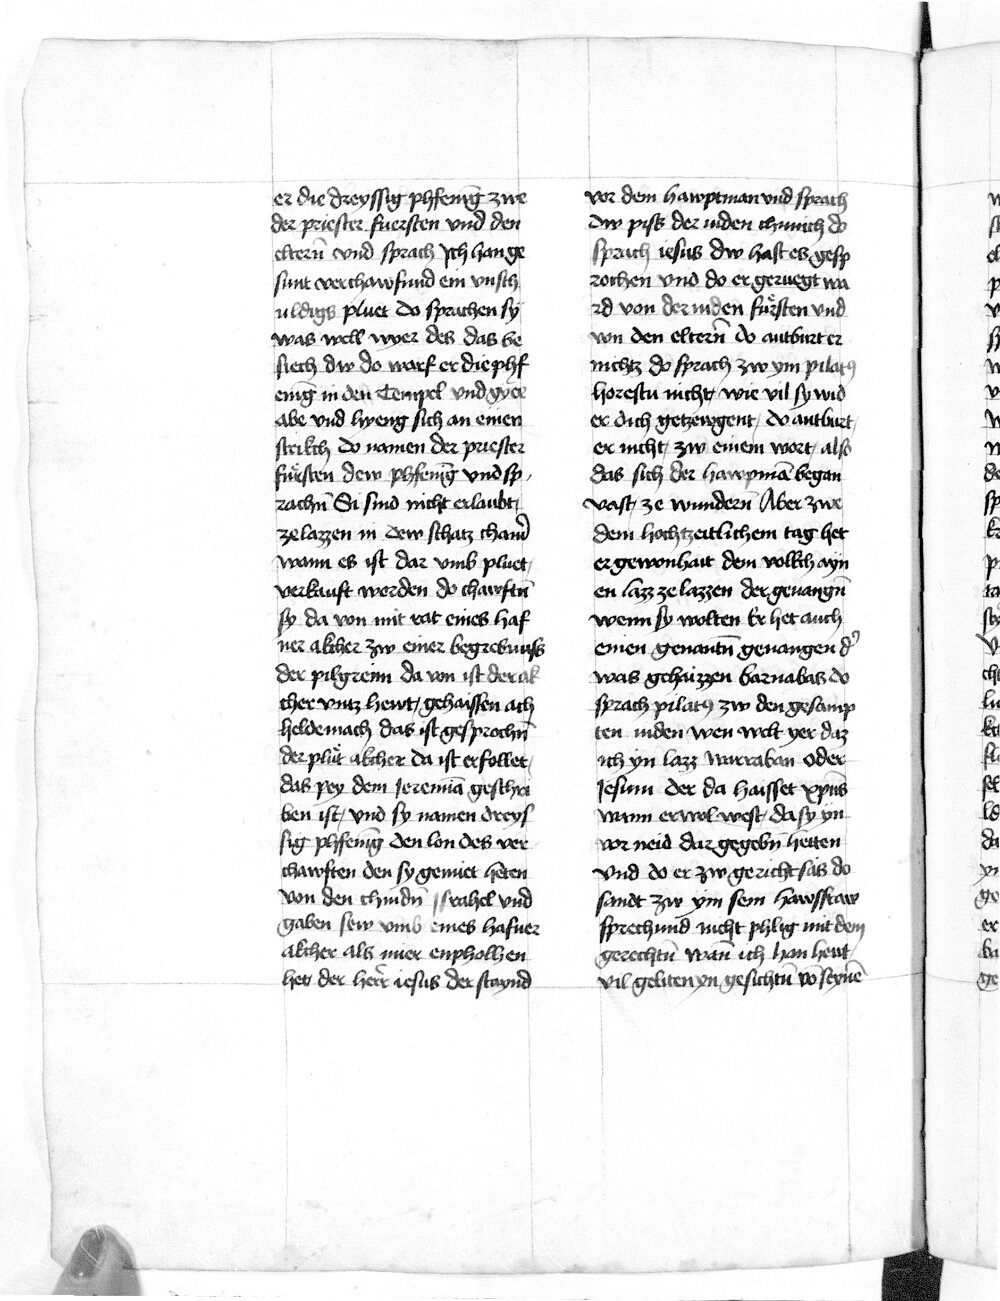 er die dreyssig phfening zwe
der priester fuersten vnd den
elterñ vnd sprach Ich han ge
sunt verchawfund ein vnsch
uldigs pluet do sprachen sy
was well wyer des das be
siech dw do warf er die phf
enīg in den Tempel vnd gyēr
abe vnd hyeng sich an einen
strikch do namen der priester
fürsten dew phfenīg vnd sp
rachñ Si sind nicht erlaubt
ze lazzen in dew schatz cham̄
wann es ist dar vmb pluet
verkauft worden do chawftñ
sy da von mit rat eines haf
ner akcher zw einer begrebnuss
der pilgreim da von ist der ak
cher vntz hewt gehaissen ach
heldemach das ist gesprochñ
der plüt akcher da ist erfollet
das pey dem Jeremiā geschri
ben ist vnd sy namen dreys
sig phfenīg den lon des ver
chawften den sy gemiet heten
von den chindñ Israhel vnd
gaben sew vmb eines hafner
akcher als mier enpholhen
het der herr iesus der staynd
vor dem hawptman vnd sprach
Dw pist der iuden chunich do
sprach iesus dw hast es gesp
rochen vnd do er geruegt wa
rd von der iuden fürsten vnd
von den elterñ do antburt er
nichtz do sprach zw ym pilatus
horestu nicht wie vil sy wid
er dich getzewgent do antburt
er nicht zw einem wort also
das sich der hawpmā began
vast ze wunderñ Aber zwe
dem hochtzeitlichem tag het
er gewonhait dem volkch ayn
en lazz ze lazzen der geuangñ
wenn sy wolten Er het auch
einen genantñ geuangen d'
was gehaizzen barnabas do
sprach pilatus zw den gesamp
ten iuden wen welt yer daz
ich yn lazz warraban oder
Jesum der da haisset xpūs
wann er wol west da sy yn
vor neid dar gegebñ hetten
vnd do er zw gericht sas do
sandt zw ym sein hawsfraw
sprechund nicht phlig mit dem
gerechtñ wañ ich han hewt
vil geliten yn gesichtñ vo seynē